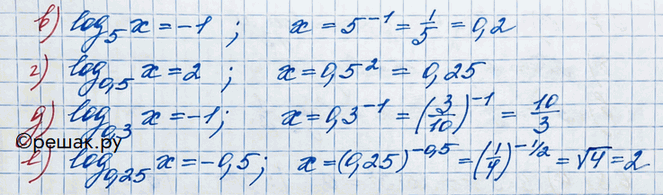 в) log₅ x = -1 ; x = 5⁻¹ = 1/5 = 0,2
г) log₀,₅ x = 2 ; x = 0,5² = 0,25
д) log₀,₃ x = -1; x = 0,3⁻¹ = (3/10)⁻¹ = 10/3
©решак.ру
е) log₀,₂₅ x = -0,5; x = (0,25)^-0,5 = (1/4)^-1/2 = √4 = 2